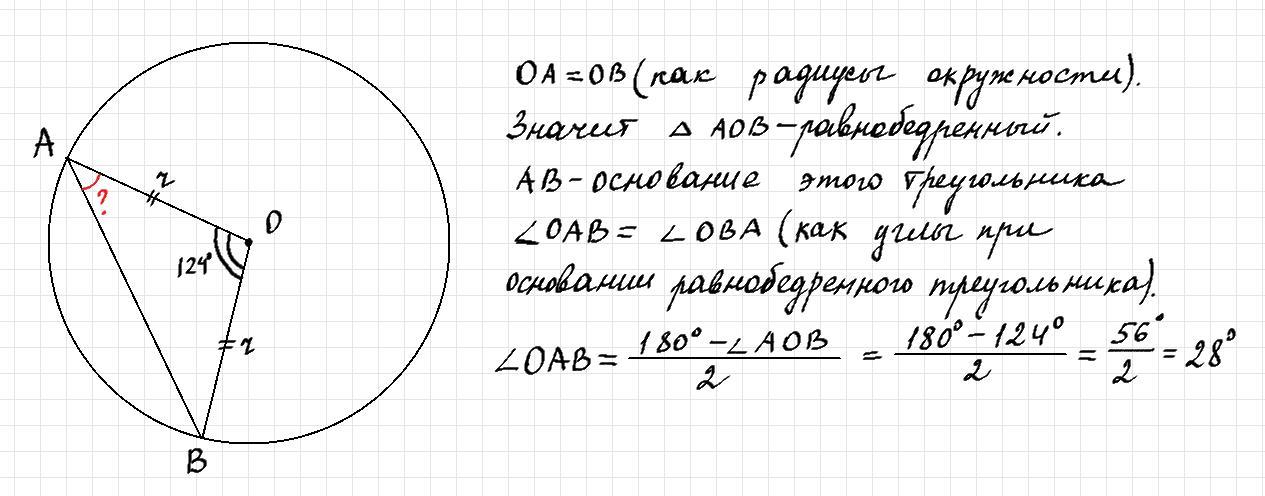 A
?
r
O
124°
r
B
OA = OB (как радиусы окружности).
Значит △ AOB – равнобедренный.
AB – основание этого треугольника
∠OAB = ∠OBA (как углы при
основании равнобедренного треугольника).
∠OAB = (180° – ∠AOB)/2 = (180° – 124°)/2 = 56°/2 = 28°